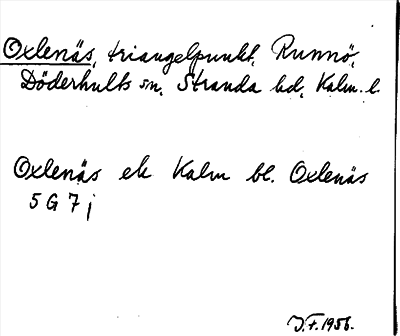 Oxlenäs, triangelpunkt, Runnö,
Döderhults sn, Stranda hd, Kalm. l.
Oxlenäs ek Kalm bl. Oxlenäs
5 G 7 j
J.F. 1956.